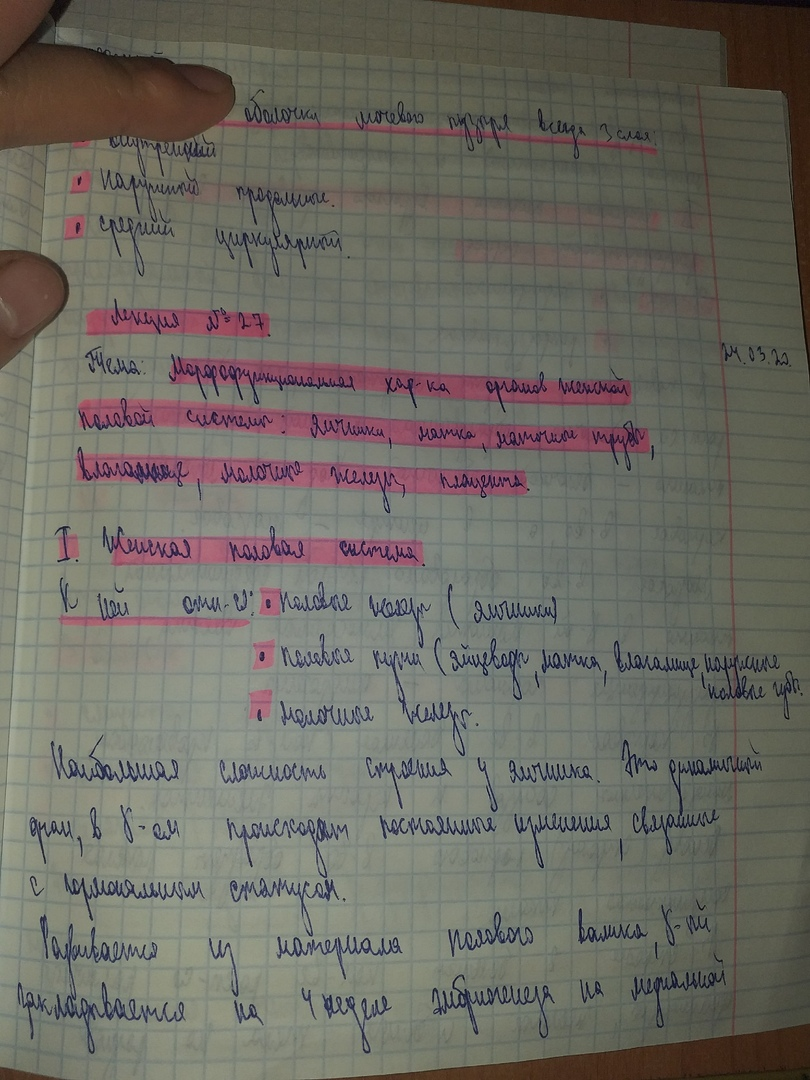 оболочки мочевого пузыря всегда 3 слоя.
• внутренний
• наружный продольные.
• средний циркулярный.
Лекция №27.
24.03.20.
Тема: Морфофункциональная хар-ка органов женской
половой системы: яичники, матка, маточные трубы,
влагалище, молочные железы, плацента.
I. Женская половая система.
К ней отн-ся: • половые железы (яичники)
• половые пути (яйцеводы, матка, влагалище, наружные
половые губы.
• молочные железы.
Наибольшая сложность строения у яичника. Это динамичный
орган, в к-ом происходят постоянные изменения, связанные
с гормональным статусом.
Развивается из материала полового валика, к-ый
закладывается на 4 неделе эмбриогенеза на медиальной